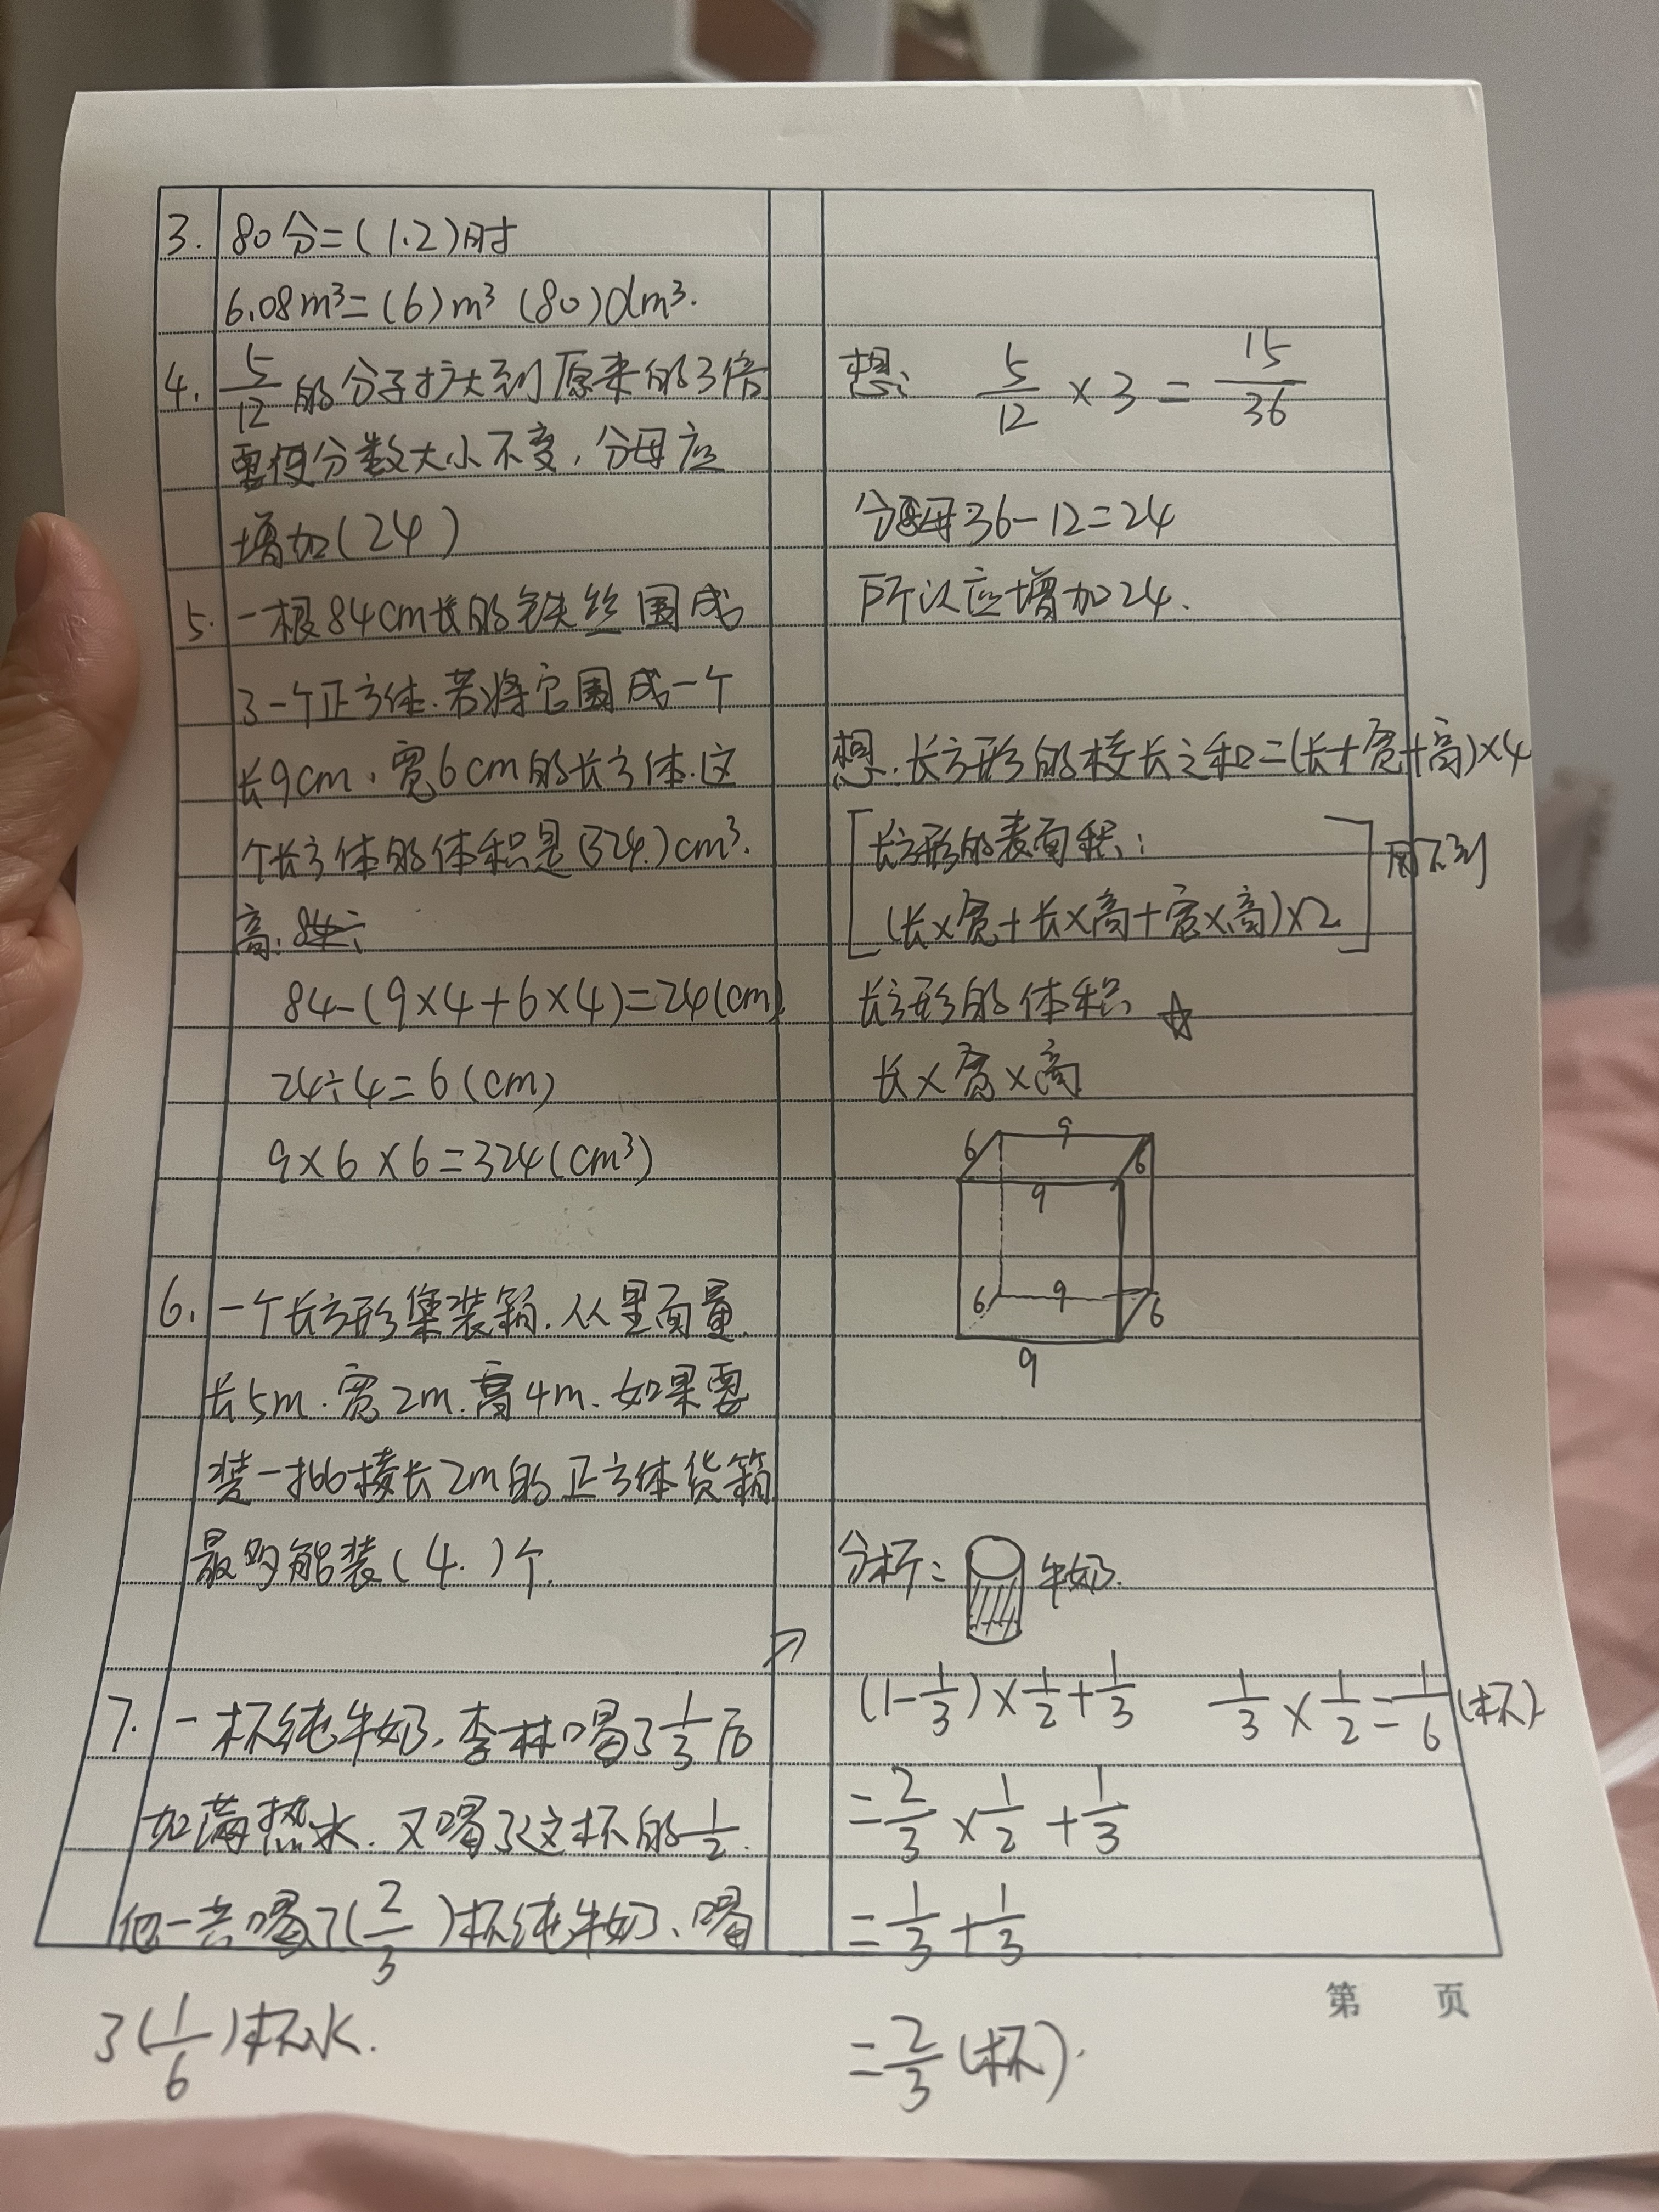 3. 80分=(1.2)时
6.08m³=(6)m³ (80)dm³.
4. 5/12的分子扩大到原来的3倍
要使分数大小不变,分母应
增加(24)
5. 一根84cm长的铁丝围成
了一个正方体.若将它围成一个
长9cm、宽6cm的长方体.这
个长方体的体积是(324)cm³.
高:
84-(9×4+6×4)=24(cm)
24÷4=6(cm)
9×6×6=324(cm³)
6. 一个长方形集装箱.从里面量.
长5m.宽2m.高4m.如果要
装一批棱长2m的正方体货箱
最多能装(4.)个.
7. 一杯纯牛奶,李林喝了1/3后
加满热水.又喝了这杯的1/2.
他一共喝了(2/3)杯纯牛奶、喝
了(1/6)杯水.
想: 5/12 × 3 = 15/36
分母36-12=24
所以应增加24.
想:长方形的棱长之和=(长+宽+高)×4
[长方形的表面积:
(长×宽+长×高+宽×高)×2] 用不到
长方形的体积 ☆
长×宽×高
6 9
9 6
6 9 6
9
分析: 牛奶.
(1-1/3)×1/2+1/3 1/3×1/2=1/6(杯)
=2/3×1/2+1/3
=1/3+1/3
=2/3(杯).
第 页